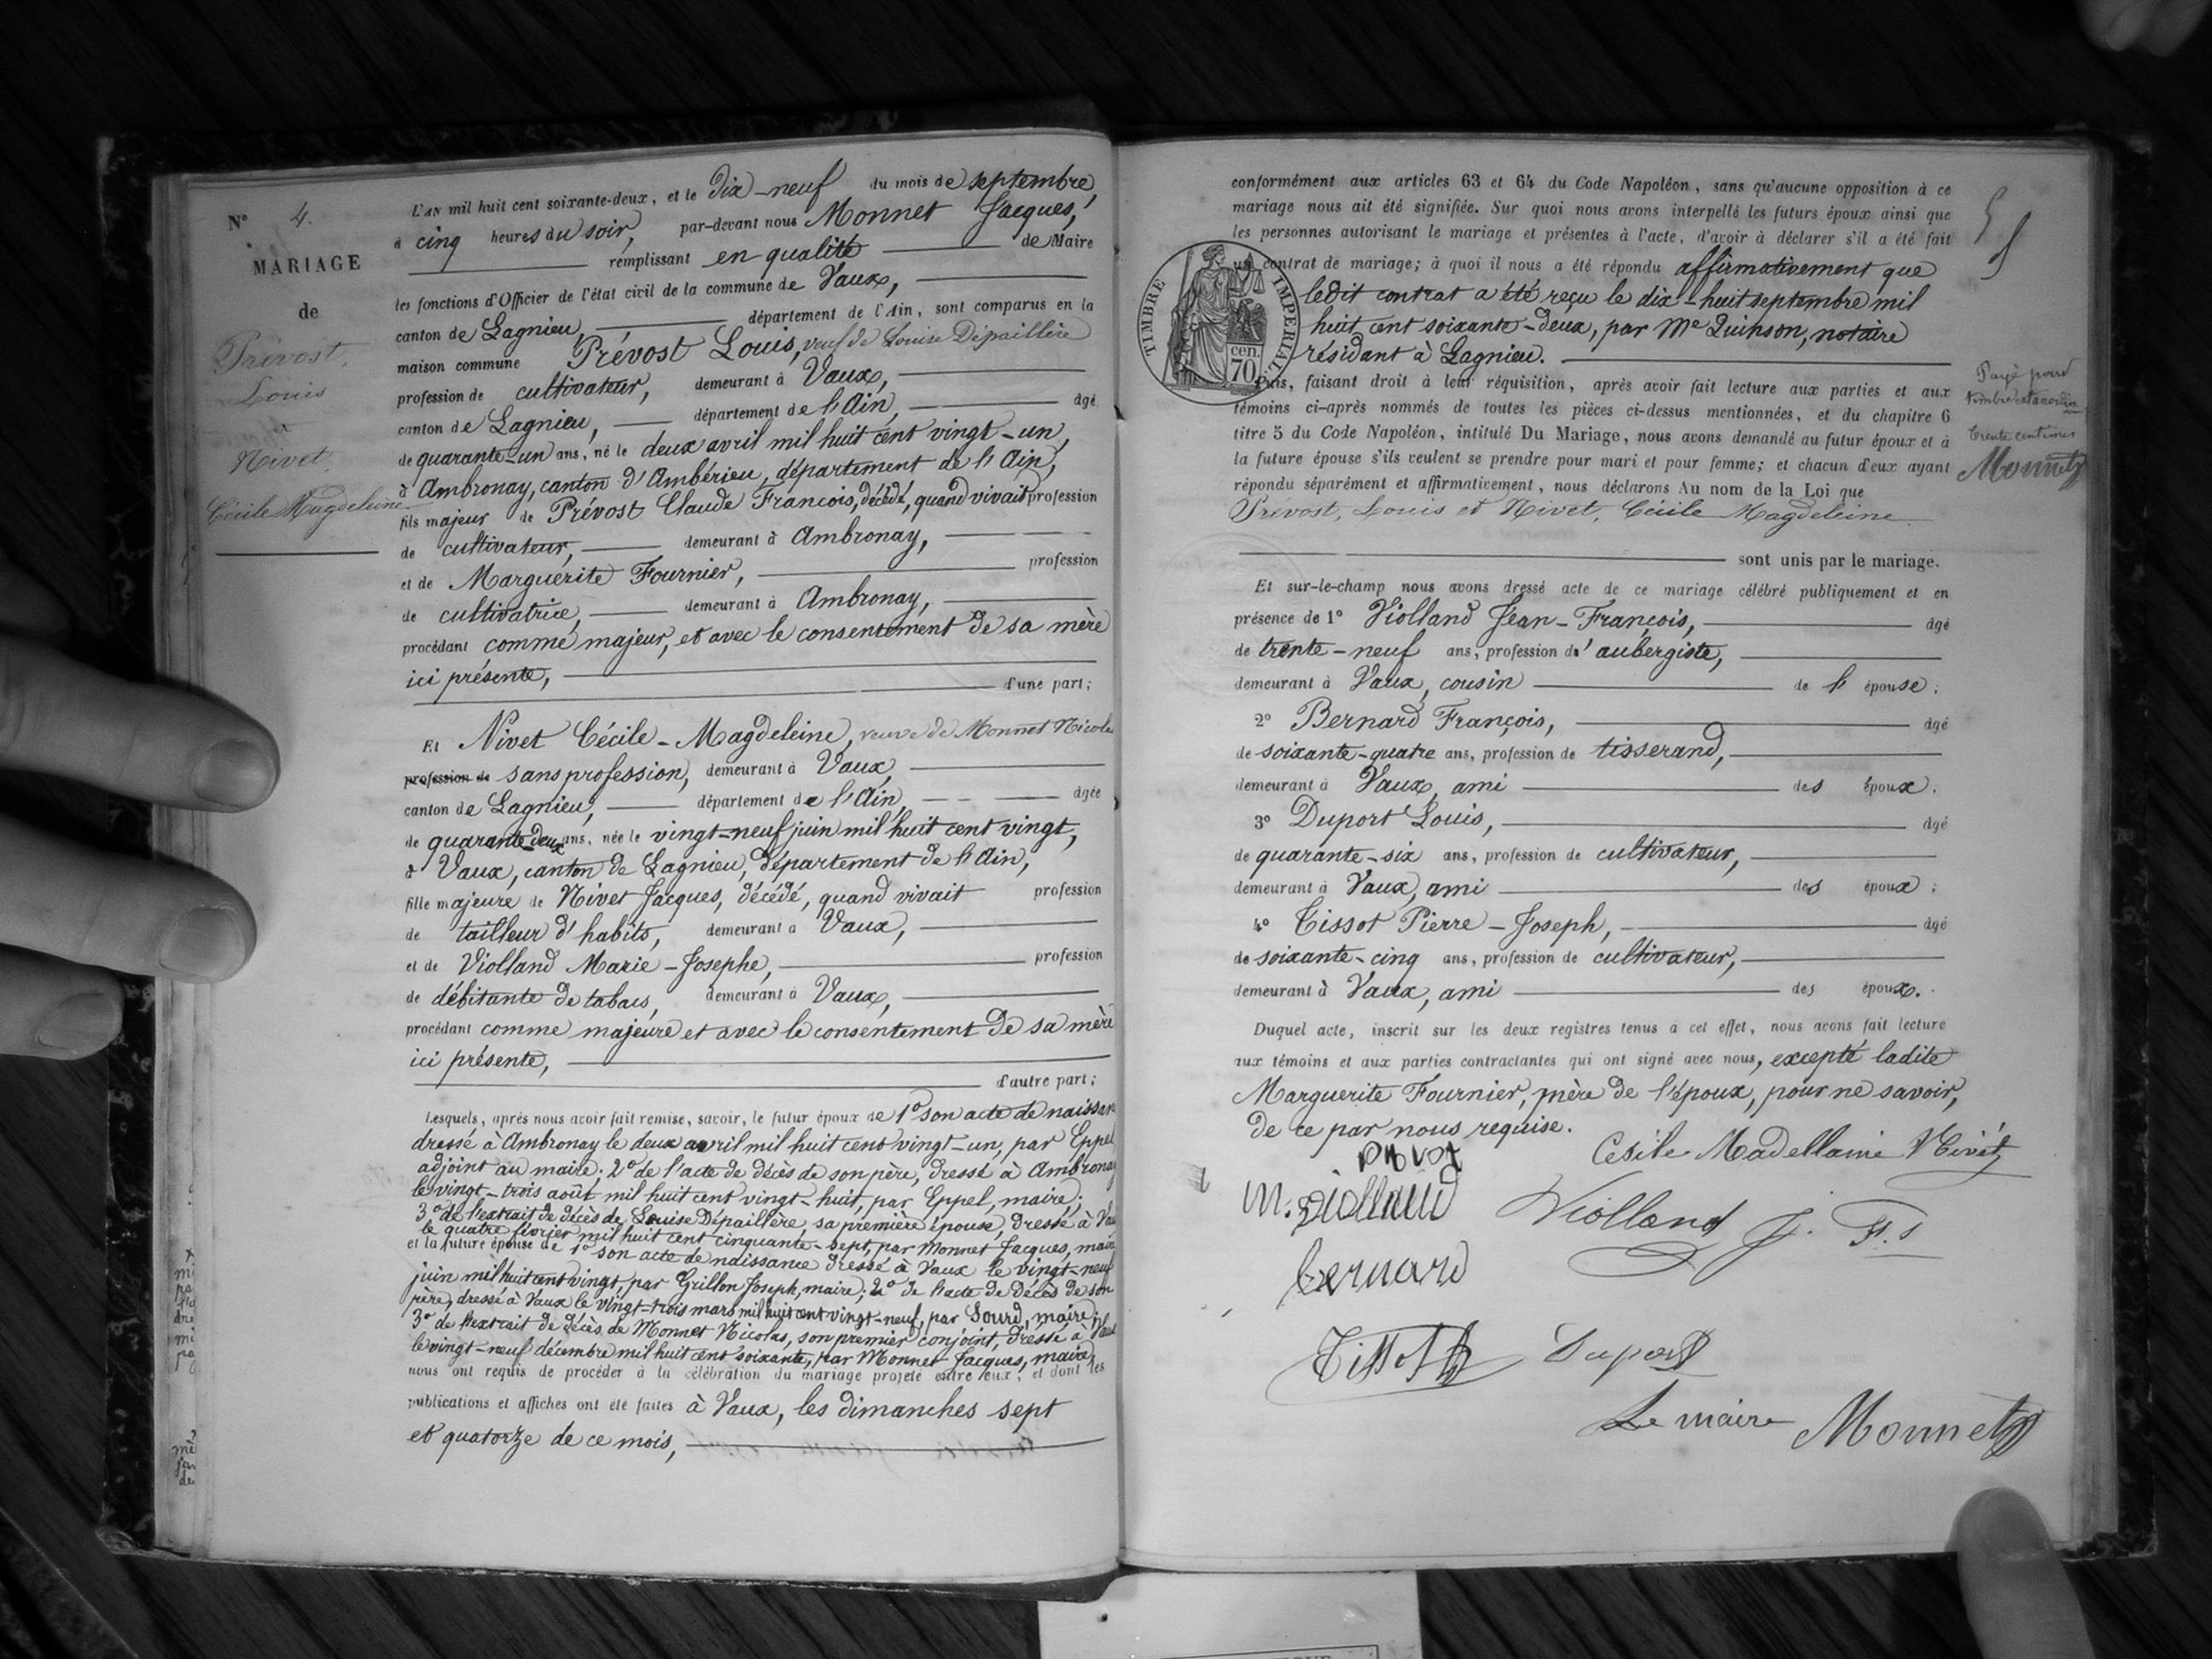 N° 4.
MARIAGE
de
Prévost,
Louis
et
Nivet,
Cécile Magdeleine
L'AN mil huit cent soixante-deux, et le dix-neuf du mois de septembre,
à cinq heures du soir, par-devant nous Monnet Jacques,
remplissant en qualité de Maire
les fonctions d'Officier de l'état civil de la commune de Vaux,
canton de Lagnieu, département de l'Ain, sont comparus en la
maison commune Prévost Louis, veuf de Louise Dépaillère
profession de cultivateur, demeurant à Vaux,
canton de Lagnieu, département de l'Ain, âgé
de quarante-un ans, né le deux avril mil huit cent vingt-un,
à Ambronay, canton d'Ambérieu, département de l'Ain,
fils majeur de Prévost Claude François, décédé, quand vivait profession
de cultivateur, demeurant à Ambronay,
et de Marguérite Fournier, profession
de cultivatrice, demeurant à Ambronay,
procédant comme majeur, et avec le consentement de sa mère
ici présente,
d'une part;
Et Nivet Cécile-Magdeleine, veuve de Monnet Nicolas
profession de sans profession, demeurant à Vaux,
canton de Lagnieu, département de l'Ain, âgée
de quarante-deux ans, née le vingt-neuf juin mil huit cent vingt,
à Vaux, canton de Lagnieu, département de l'Ain,
fille majeure de Nivet Jacques, décédé, quand vivait profession
de tailleur d'habits, demeurant à Vaux,
et de Violland Marie-Josephe, profession
de débitante de tabacs, demeurant à Vaux,
procédant comme majeure et avec le consentement de sa mère
ici présente,
d'autre part;
Lesquels, après nous avoir fait remise, savoir, le futur époux de 1° son acte de naissan
dressé à Ambronay le deux avril mil huit cent vingt-un, par Eppel
adjoint au maire; 2° de l'acte de décès de son père, dressé à Ambronay
le vingt-trois août mil huit cent vingt-huit, par Eppel, maire;
3° de l'extrait de décès de Louise Dépaillère, sa première épouse, dressé à Vaux
le quatre février mil huit cent cinquante-sept, par Monnet Jacques, maire
et la future épouse de 1° son acte de naissance dressé à Vaux le vingt-neuf
juin mil huit cent vingt, par Grillon Joseph, maire; 2° de l'acte de décès de son
père, dressé à Vaux le vingt-trois mars mil huit cent vingt-neuf, par Sourd, maire;
3° de l'extrait de décès de Monnet Nicolas, son premier conjoint, dressé à Vaux
le vingt-neuf décembre mil huit cent soixante, par Monnet Jacques, maire,
nous ont requis de procéder à la célébration du mariage projeté entre eux; et dont les
publications et affiches ont été faites à Vaux, les dimanches sept
et quatorze de ce mois,
conformément aux articles 63 et 64 du Code Napoléon, sans qu'aucune opposition à ce
mariage nous ait été signifiée. Sur quoi nous avons interpellé les futurs époux ainsi que
les personnes autorisant le mariage et présentes à l'acte, d'avoir à déclarer s'il a été fait
un contrat de mariage; à quoi il nous a été répondu affirmativement que
ledit contrat a été reçu le dix-huit septembre mil
huit cent soixante-deux, par Me Quinson, notaire
résidant à Lagnieu.
TIMBRE IMPERIAL
cen.
70
Puis, faisant droit à leur réquisition, après avoir fait lecture aux parties et aux
témoins ci-après nommés de toutes les pièces ci-dessus mentionnées, et du chapitre 6
titre 5 du Code Napoléon, intitulé Du Mariage, nous avons demandé au futur époux et à
la future épouse s'ils veulent se prendre pour mari et pour femme; et chacun d'eux ayant
répondu séparément et affirmativement, nous déclarons Au nom de la Loi que
Prévost, Louis et Nivet, Cécile Magdeleine
sont unis par le mariage.
Payé pour
timbre extraordin
trente centimes
Monnet
Et sur-le-champ nous avons dressé acte de ce mariage célébré publiquement et en
présence de 1° Violland Jean-François, âgé
de trente-neuf ans, profession d'aubergiste,
demeurant à Vaux, cousin de l'épouse;
2° Bernard François, âgé
de soixante-quatre ans, profession de tisserand,
demeurant à Vaux, ami des époux;
3° Duport Louis, âgé
de quarante-six ans, profession de cultivateur,
demeurant à Vaux, ami des époux;
4° Tissot Pierre-Joseph, âgé
de soixante-cinq ans, profession de cultivateur,
demeurant à Vaux, ami des époux.
Duquel acte, inscrit sur les deux registres tenus à cet effet, nous avons fait lecture
aux témoins et aux parties contractantes qui ont signé avec nous, excepté ladite
Marguerite Fournier, mère de l'époux, pour ne savoir,
de ce par nous requise.
Cesile Madellaine Nivet
m. violland
Violland J. Fs
bernard
Tissot Duport
Le maire Monnet